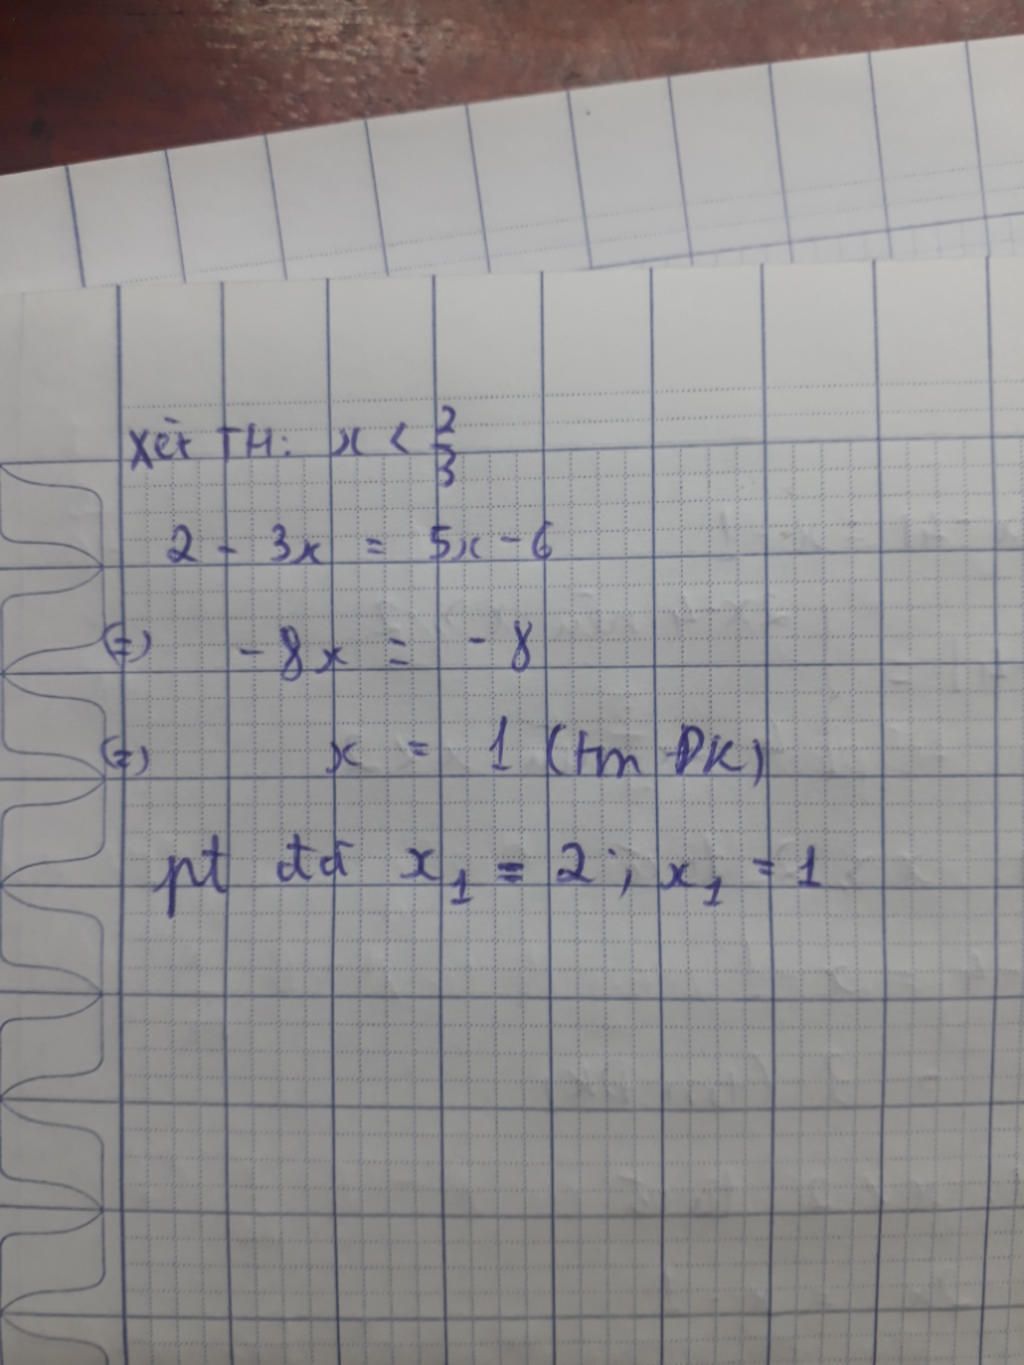 xét TH: x < 2/3
2 - 3x = 5x - 6
(=) -8x = -8
(=) x = 1 (tm ĐK)
pt đã x₁ = 2 ; x₁ = 1